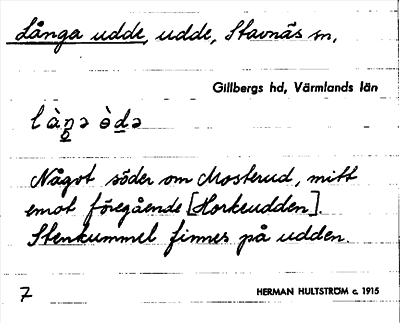 Långa udde, udde, Stavnäs sn,
Gillbergs hd, Värmlands län
làṉə òḏə
Något söder om Mosterud, mitt
emot föregående [Horkeudden].
Stenkummel finnes på udden.
7
HERMAN HULTSTRÖM c. 1915